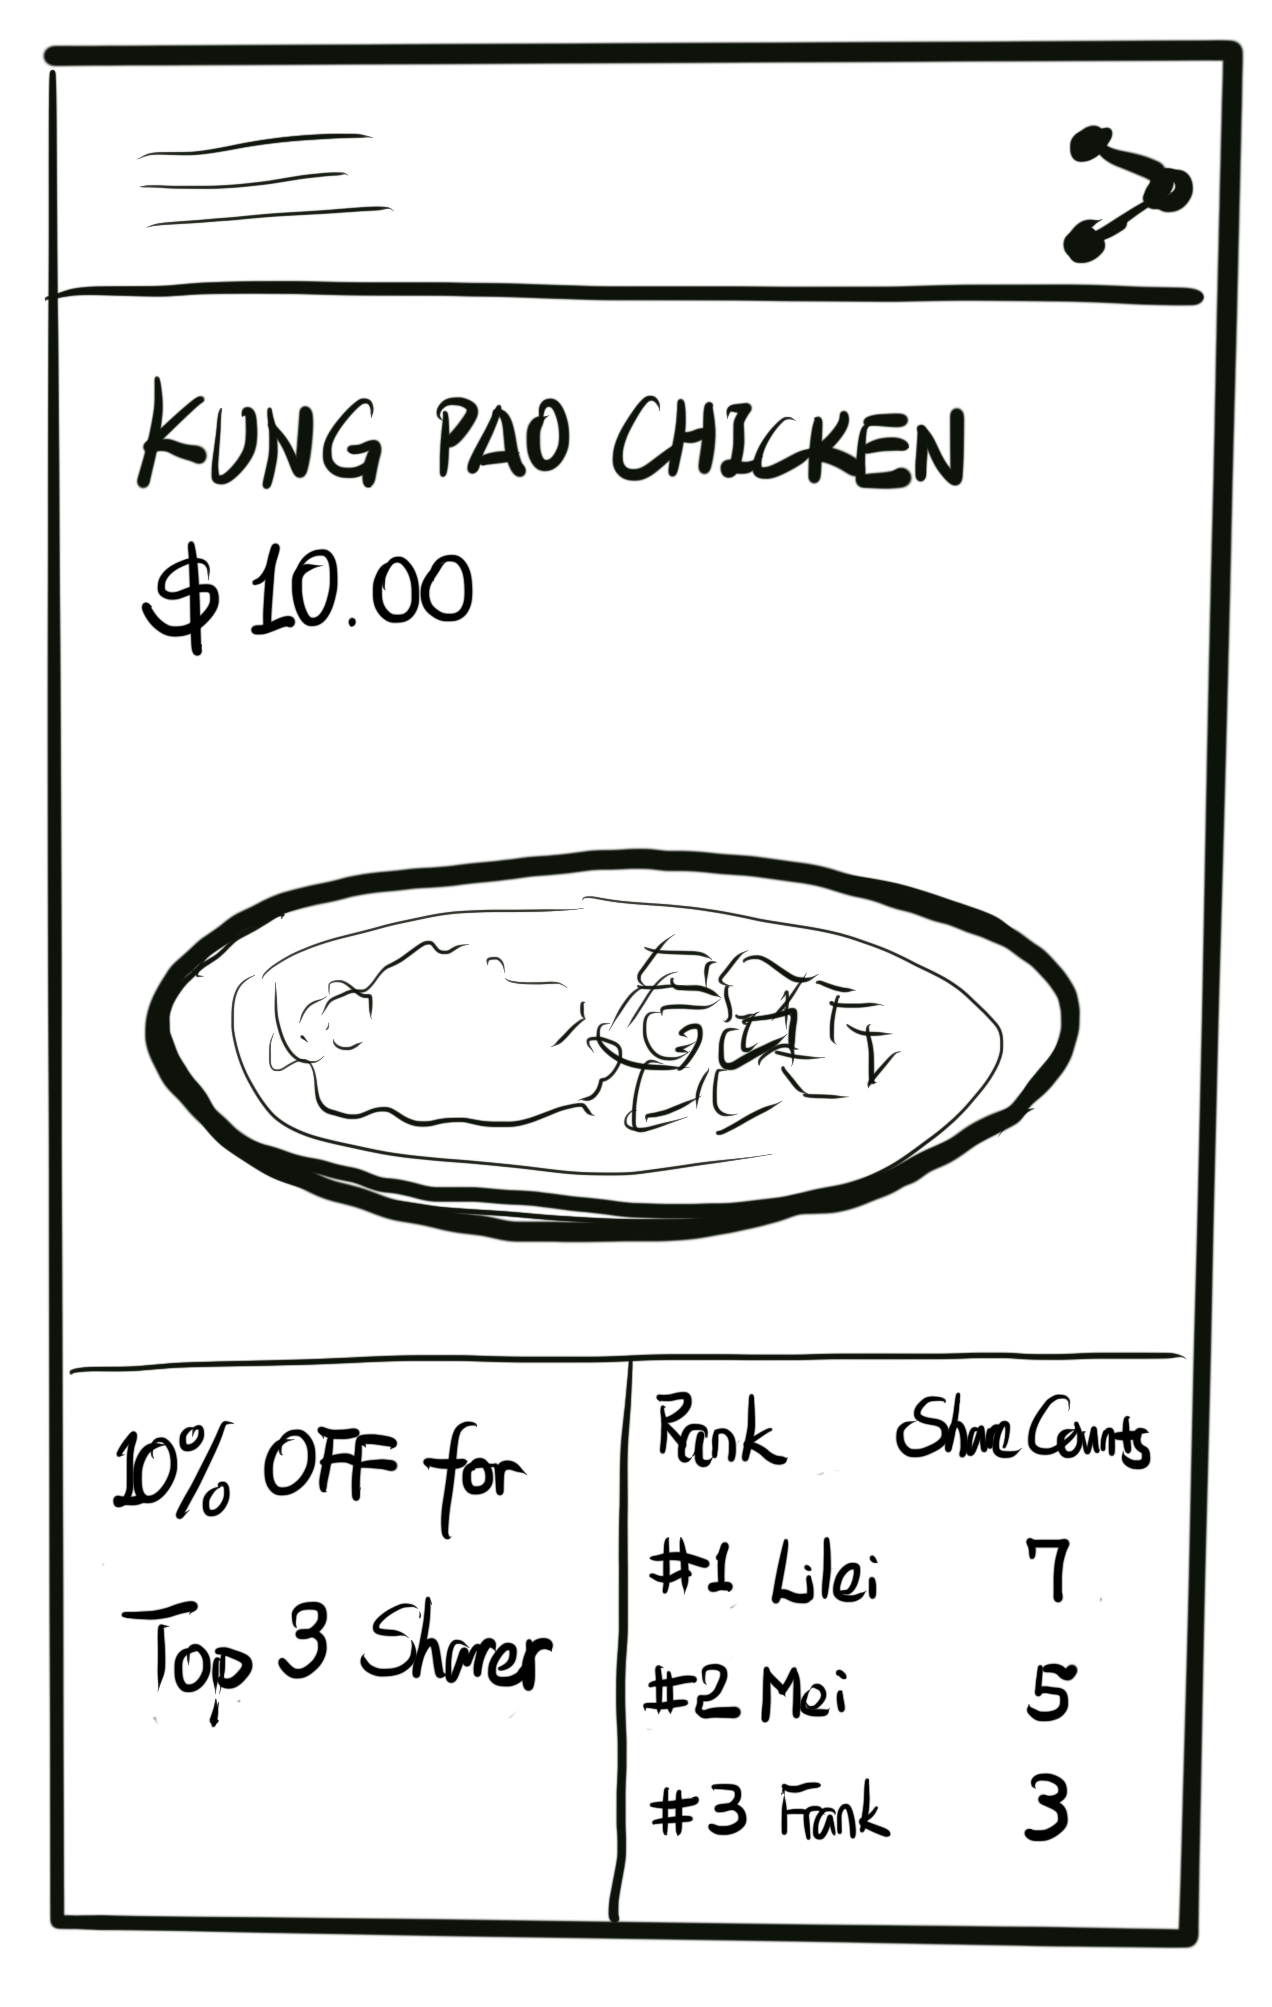 KUNG PAO CHICKEN
$10.00
10% OFF for
Top 3 Sharer
Rank Share Counts
#1 Lilei 7
#2 Mei 5
#3 Frank 3